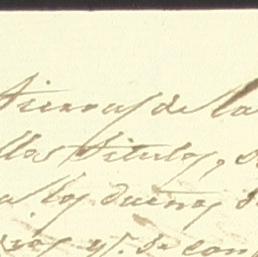 tierras de la
llos titulos, d
a los dueños d
rios qᵉ. de con